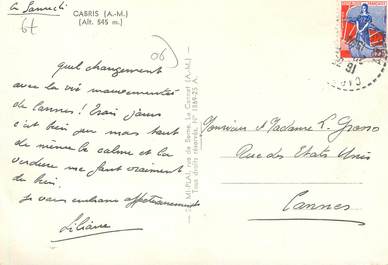 ce Samedi
CABRIS (A.-M.)
(Alt. 545 m.)
6f
06
quel changement
avec la vie mouvementée
de Cannes ! Trois jours
c'est bien peu mais tout
de même le calme et la
verdure me font vraiment
du bien.
Je vous embrasse affectueusement
Liliane
MI-PLAI, rue de Serre, Le Cannet (A.-M.)
Tous droits réservés. N° 1889-25 A.
Monsieur et Madame L. Grosso
Rue des Etats Unis
Cannes